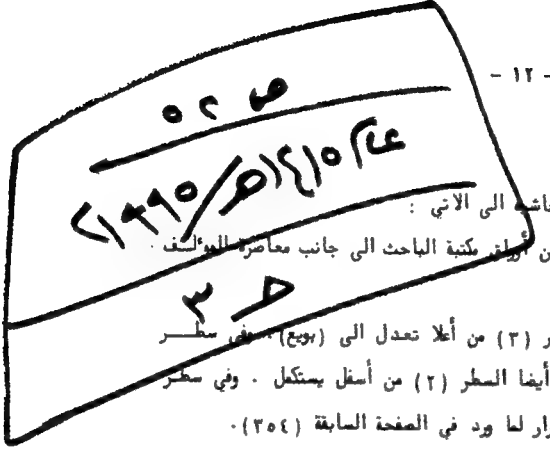 - ١٢ -
ص ٢ ٥
عام ١٤١٥هـ/١٩٩٥م
ط ٣
الى الاتي :
مكتبة الباحث الى جانب معاصرة المؤلف .
ر (٣) من أعلا تعدل الى (بويع). وفي سطر
أيضا السطر (٢) من أسفل يستكمل . وفي سطر
لما ورد في الصفحة السابقة (٣٥٤).